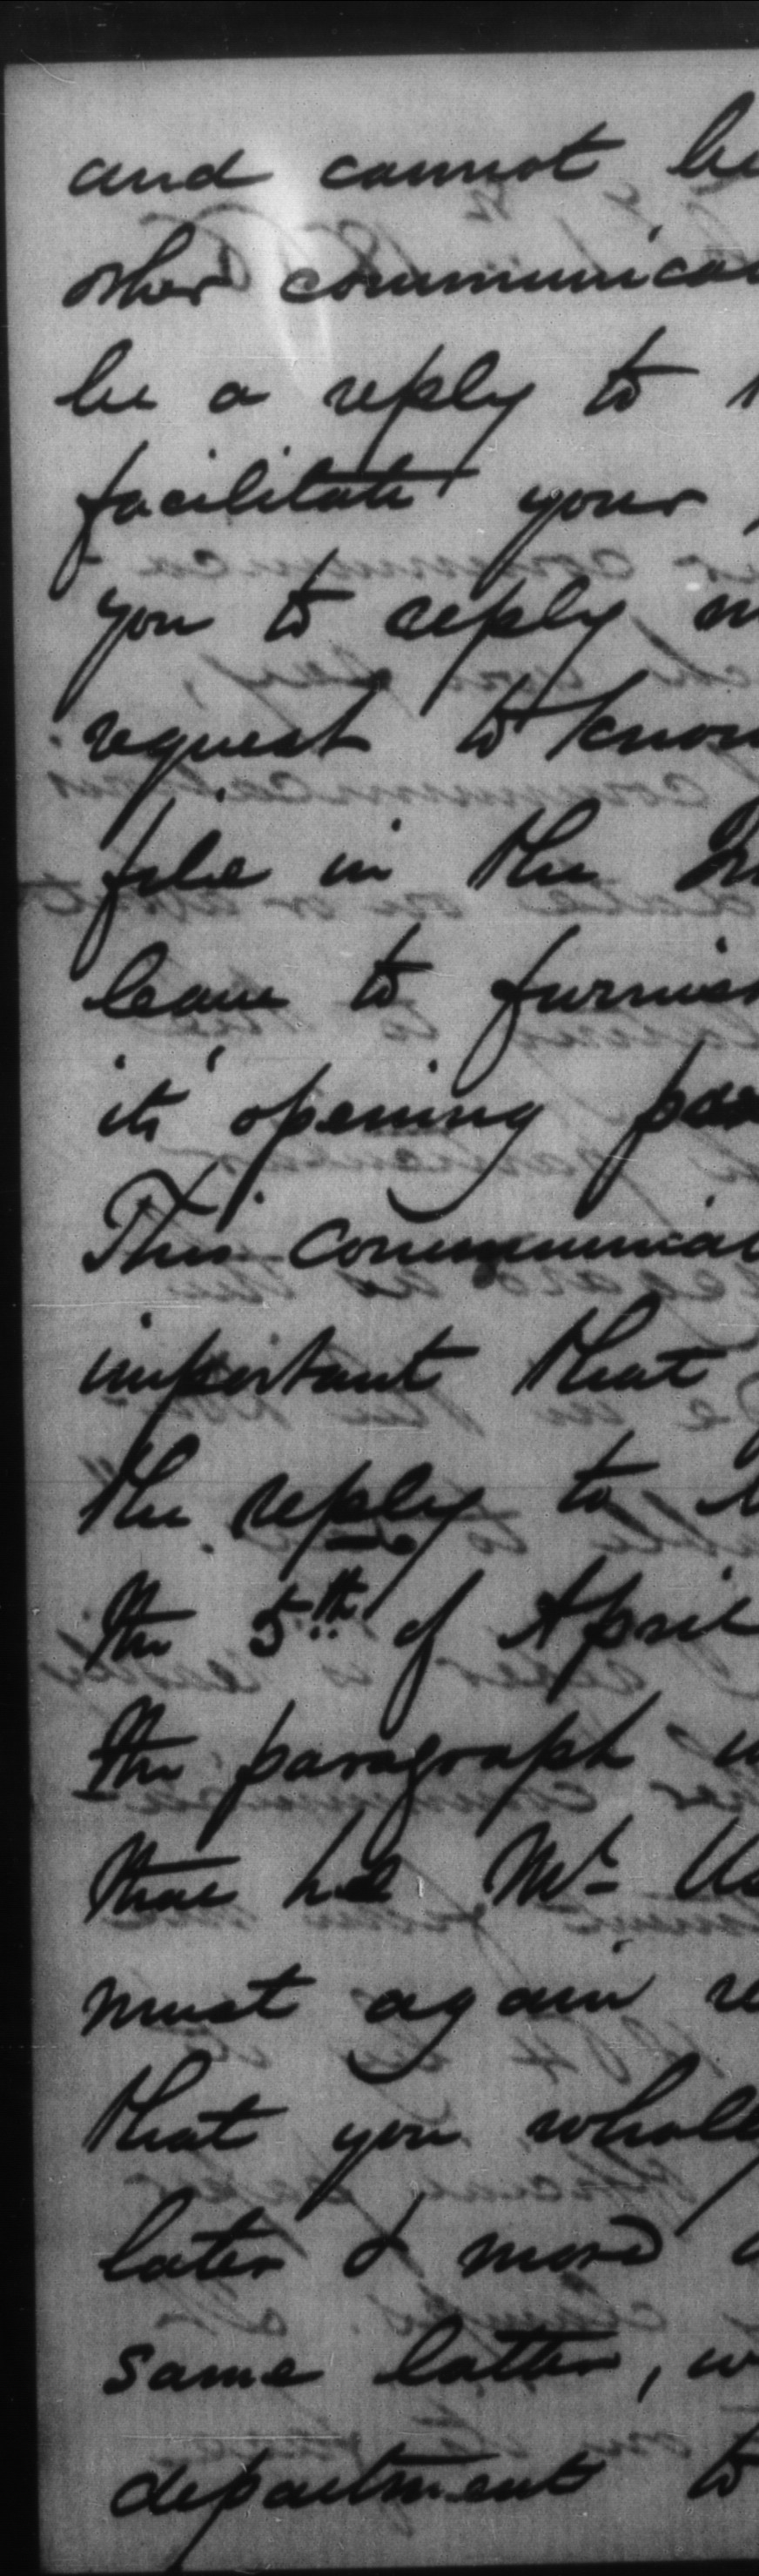 and cannot be
other communica
be a reply to
facilitate your
you to reply
request to know
file in the
leave to furnish
its opening pa
This communica
important that
the reply to
the 5th of April
the paragraph
that he Mr
must again re
that you wholly
later & more
same latter, w
department to